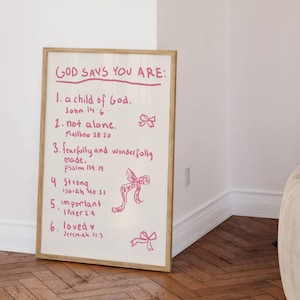 GOD SAYS YOU ARE:
1. a child of God.
John 14:6
2. not alone.
Matthew 28:20
3. fearfully and wonderfully
made.
psalm 139:14
4 strong
isaiah 40:31
5 important
1 Peter 2:9
6. loved ♥
Jeremiah 31:3